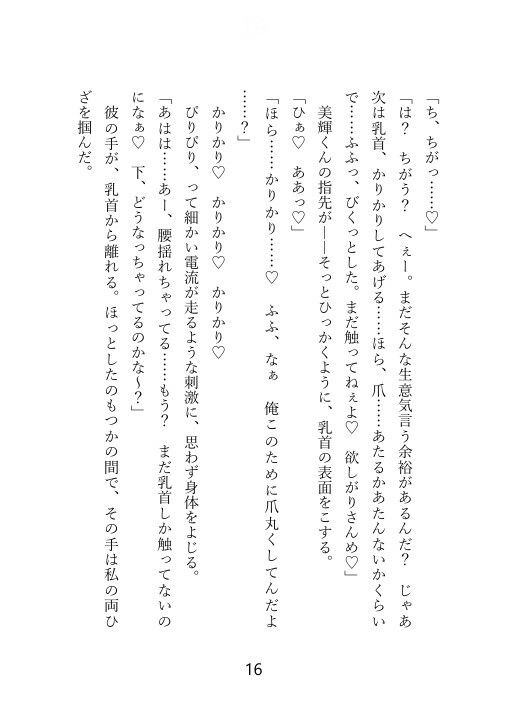 「ち、ちがっ……♡」
「は？　ちがう？　へぇー。まだそんな生意気言う余裕があるんだ？　じゃあ
次は乳首、かりかりしてあげる……ほら、爪……あたるかあたんないかくらい
で……ふふっ、びくっとした。まだ触ってねぇよ♡　欲しがりさんめ♡」
　美輝くんの指先が――そっとひっかくように、乳首の表面をこする。
「ひぁ♡　ああっ♡」
「ほら……かりかり……♡　ふふ、なぁ　俺このために爪丸くしてんだよ
……？」
　かりかり♡　かりかり♡　かりかり♡
　ぴりぴり、って細かい電流が走るような刺激に、思わず身体をよじる。
「あはは……あー、腰揺れちゃってる……もう？　まだ乳首しか触ってないの
になぁ♡　下、どうなっちゃってるのかな～？」
　彼の手が、乳首から離れる。ほっとしたのもつかの間で、その手は私の両ひ
ざを掴んだ。
16